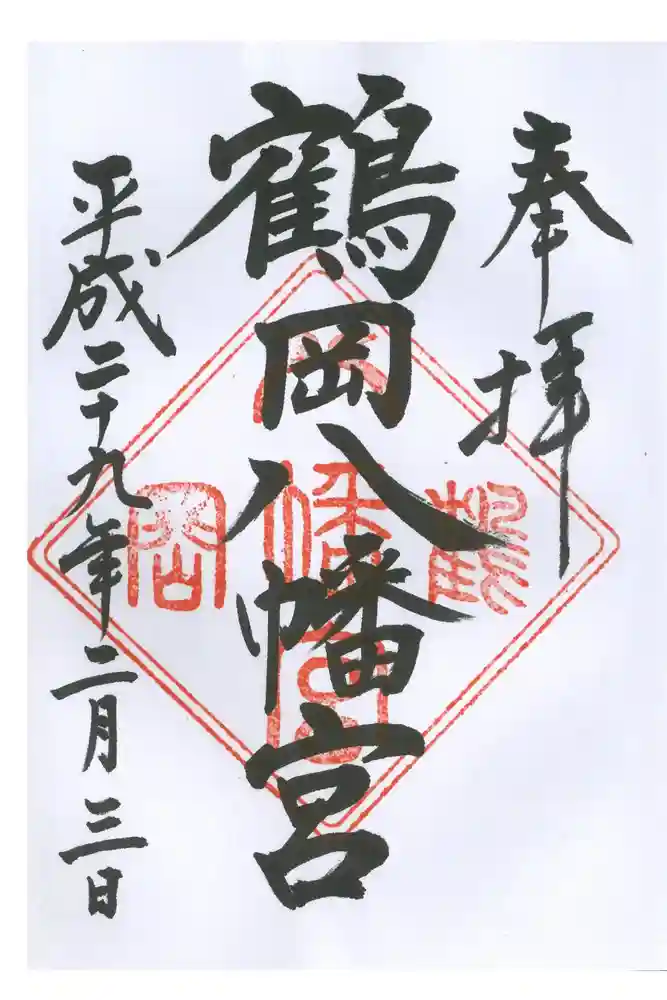 奉拝
鶴岡八幡宮
平成二十九年二月三日
鶴
八幡宮
岡